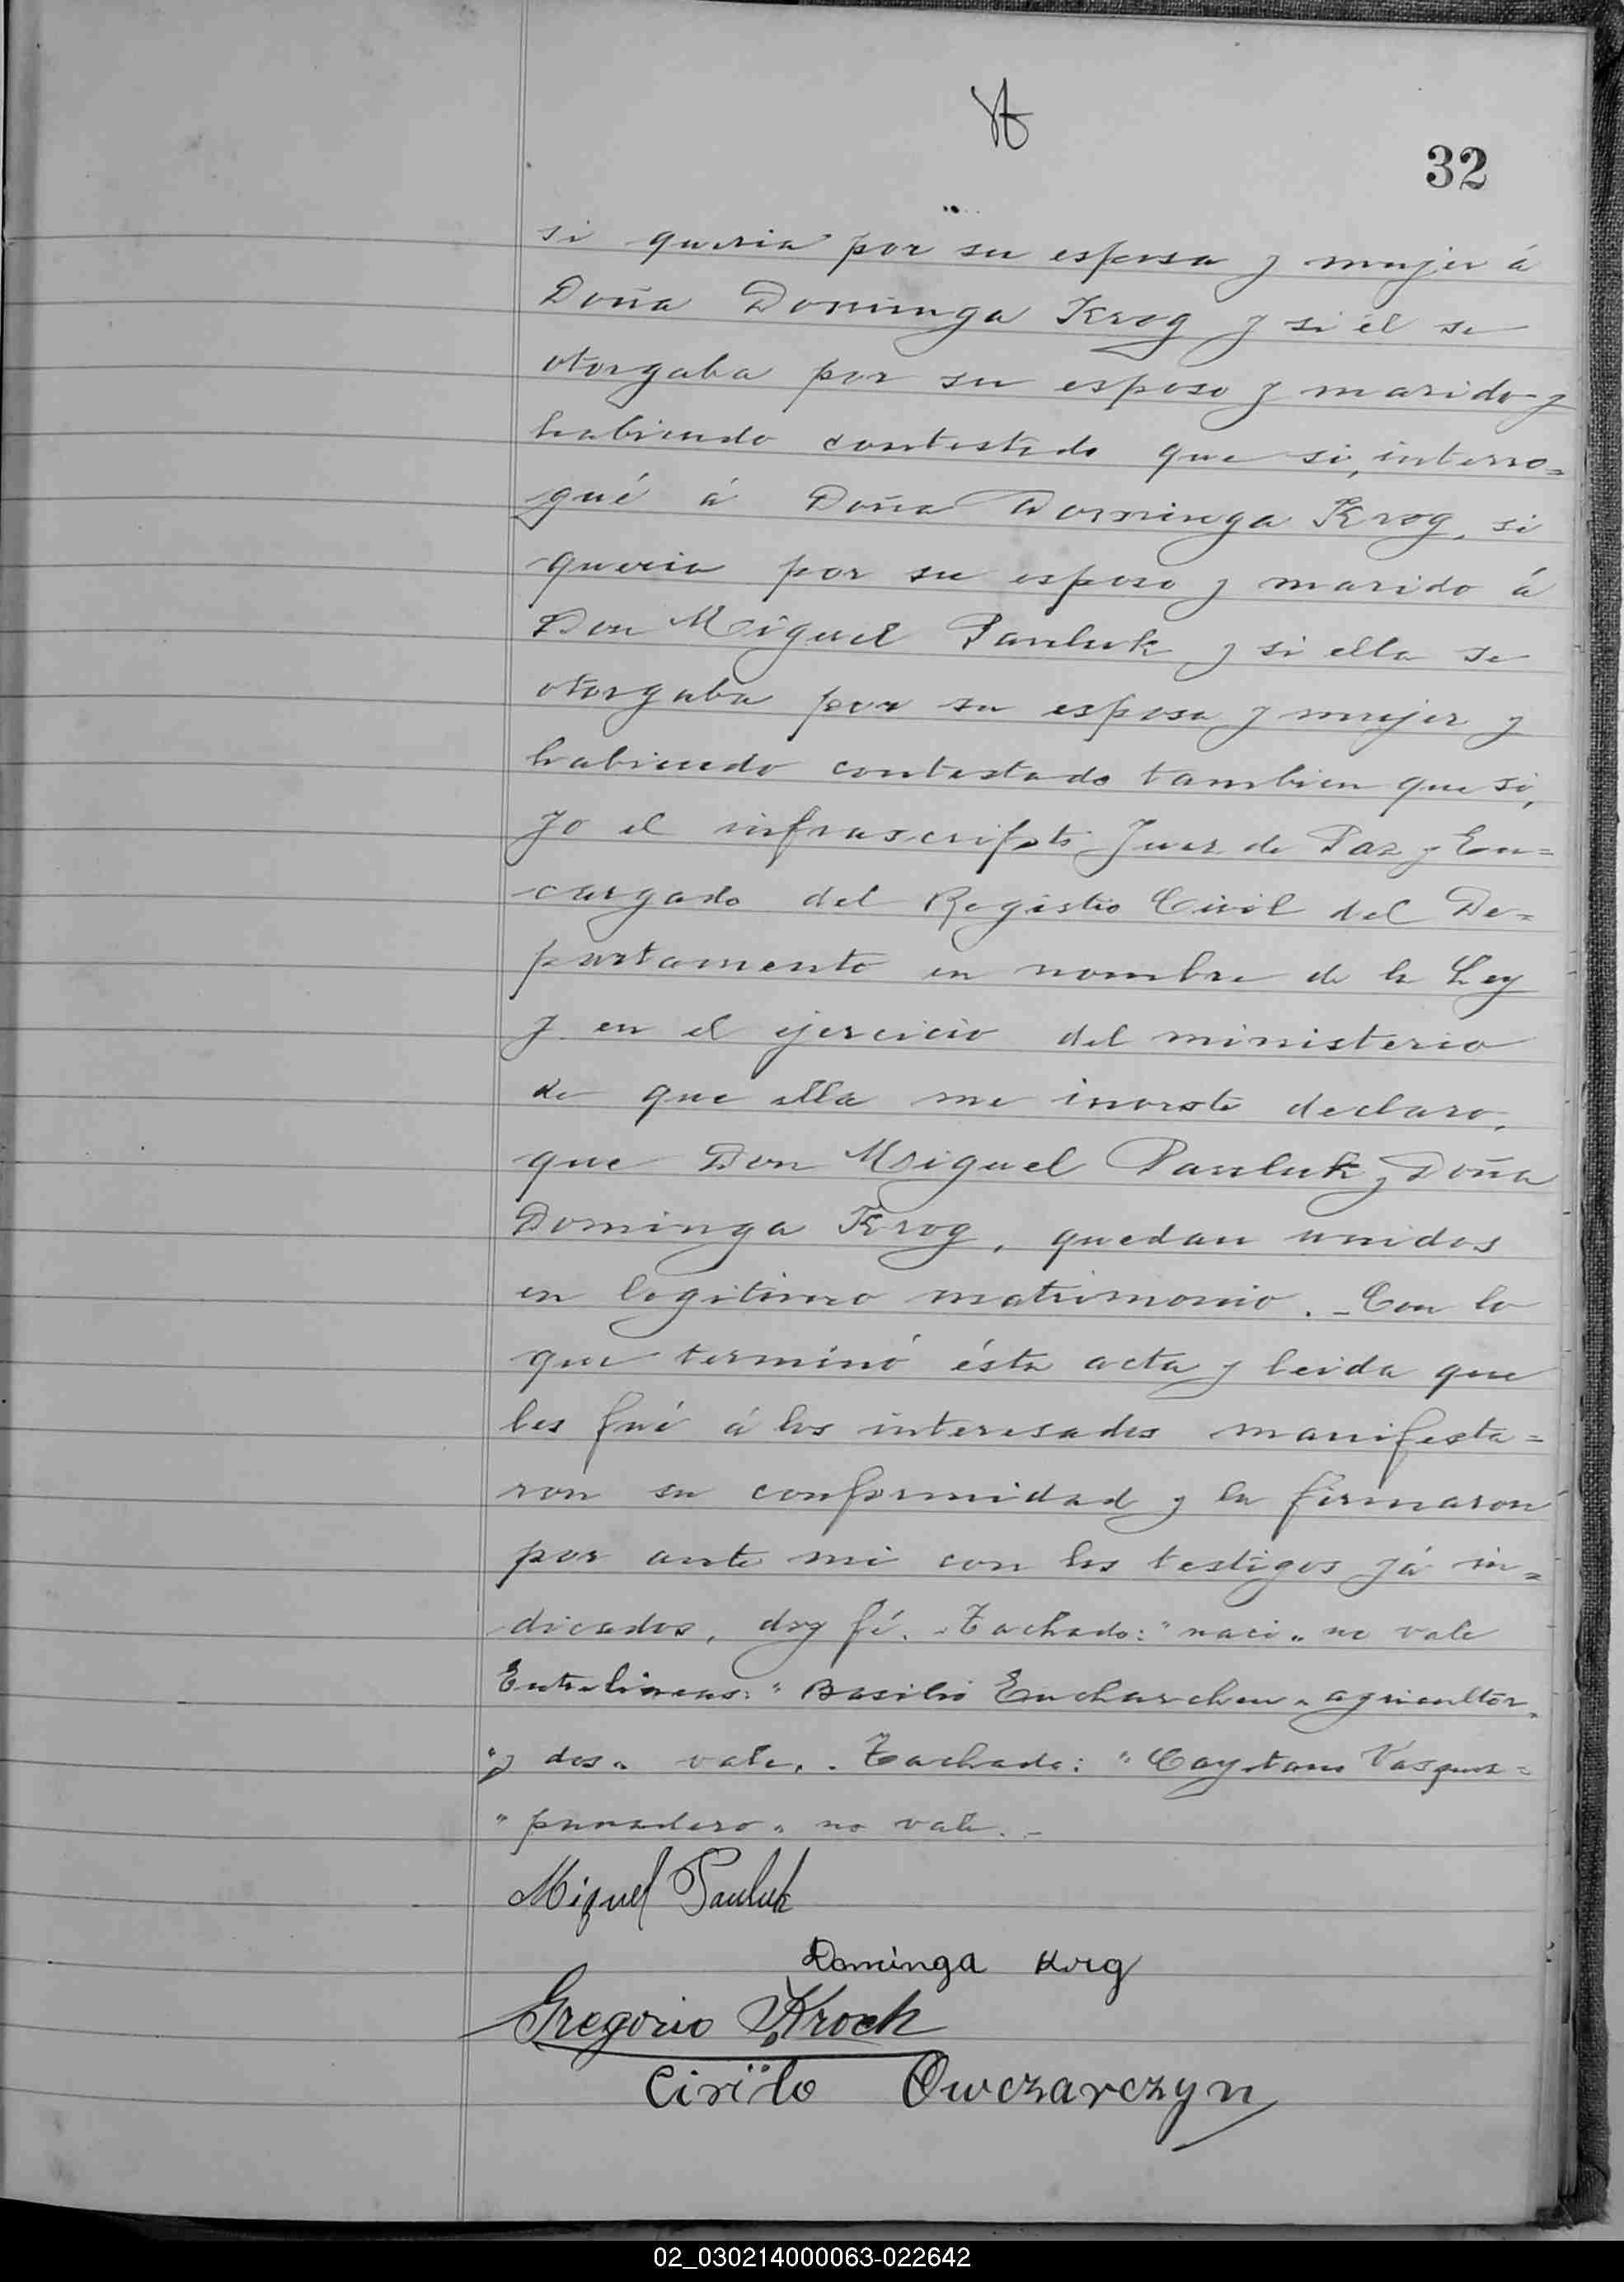 32
si queria por su esposa y mujer á
Doña Dominga Krog y si él se
otorgaba por su esposo y marido y
habiendo contestado que si, interro=
gué á Doña Dominga Krog, si
queria por su esposo y marido á
Don Miguel Pauluk y si ella se
otorgaba por su esposa y mujer y
habiendo contestado tambien que si,
yo el infrascripto Juez de Paz y En=
cargado del Registro Civil del De=
partamento en nombre de la Ley
y en el ejercicio del ministerio
de que ella me inviste declaro,
que Don Miguel Pauluk y Doña
Dominga Krog, quedan unidos
en legitimo matrimonio. - Con lo
que terminó ésta acta y leida que
les fué á los interesados manifesta=
ron su conformidad y la firmaron
por ante mi con los testigos yá in=
dicados, doy fé. - Tachado: "naci" no vale
Entrelineas: "Basilio - agricultor"
"y dos" vale. - Tachado: "Cayetano Vasquez =
"panadero" no vale. -
Miguel Pauluk
Dominga Krg
Gregorio Krock
Cirilo Owczarczyn
02_030214000063-022642